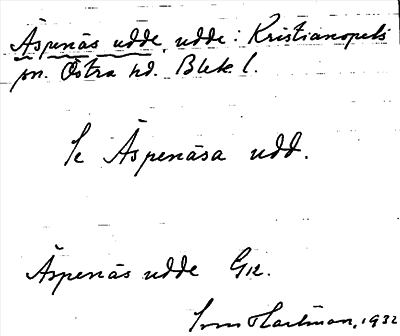 Äspenäs udde, udde: Kristianopels
sn. Östra hd. Blek. l.
Se Äspenäsa udd.
Äspenäs udde Gk.
Hartman, 1932